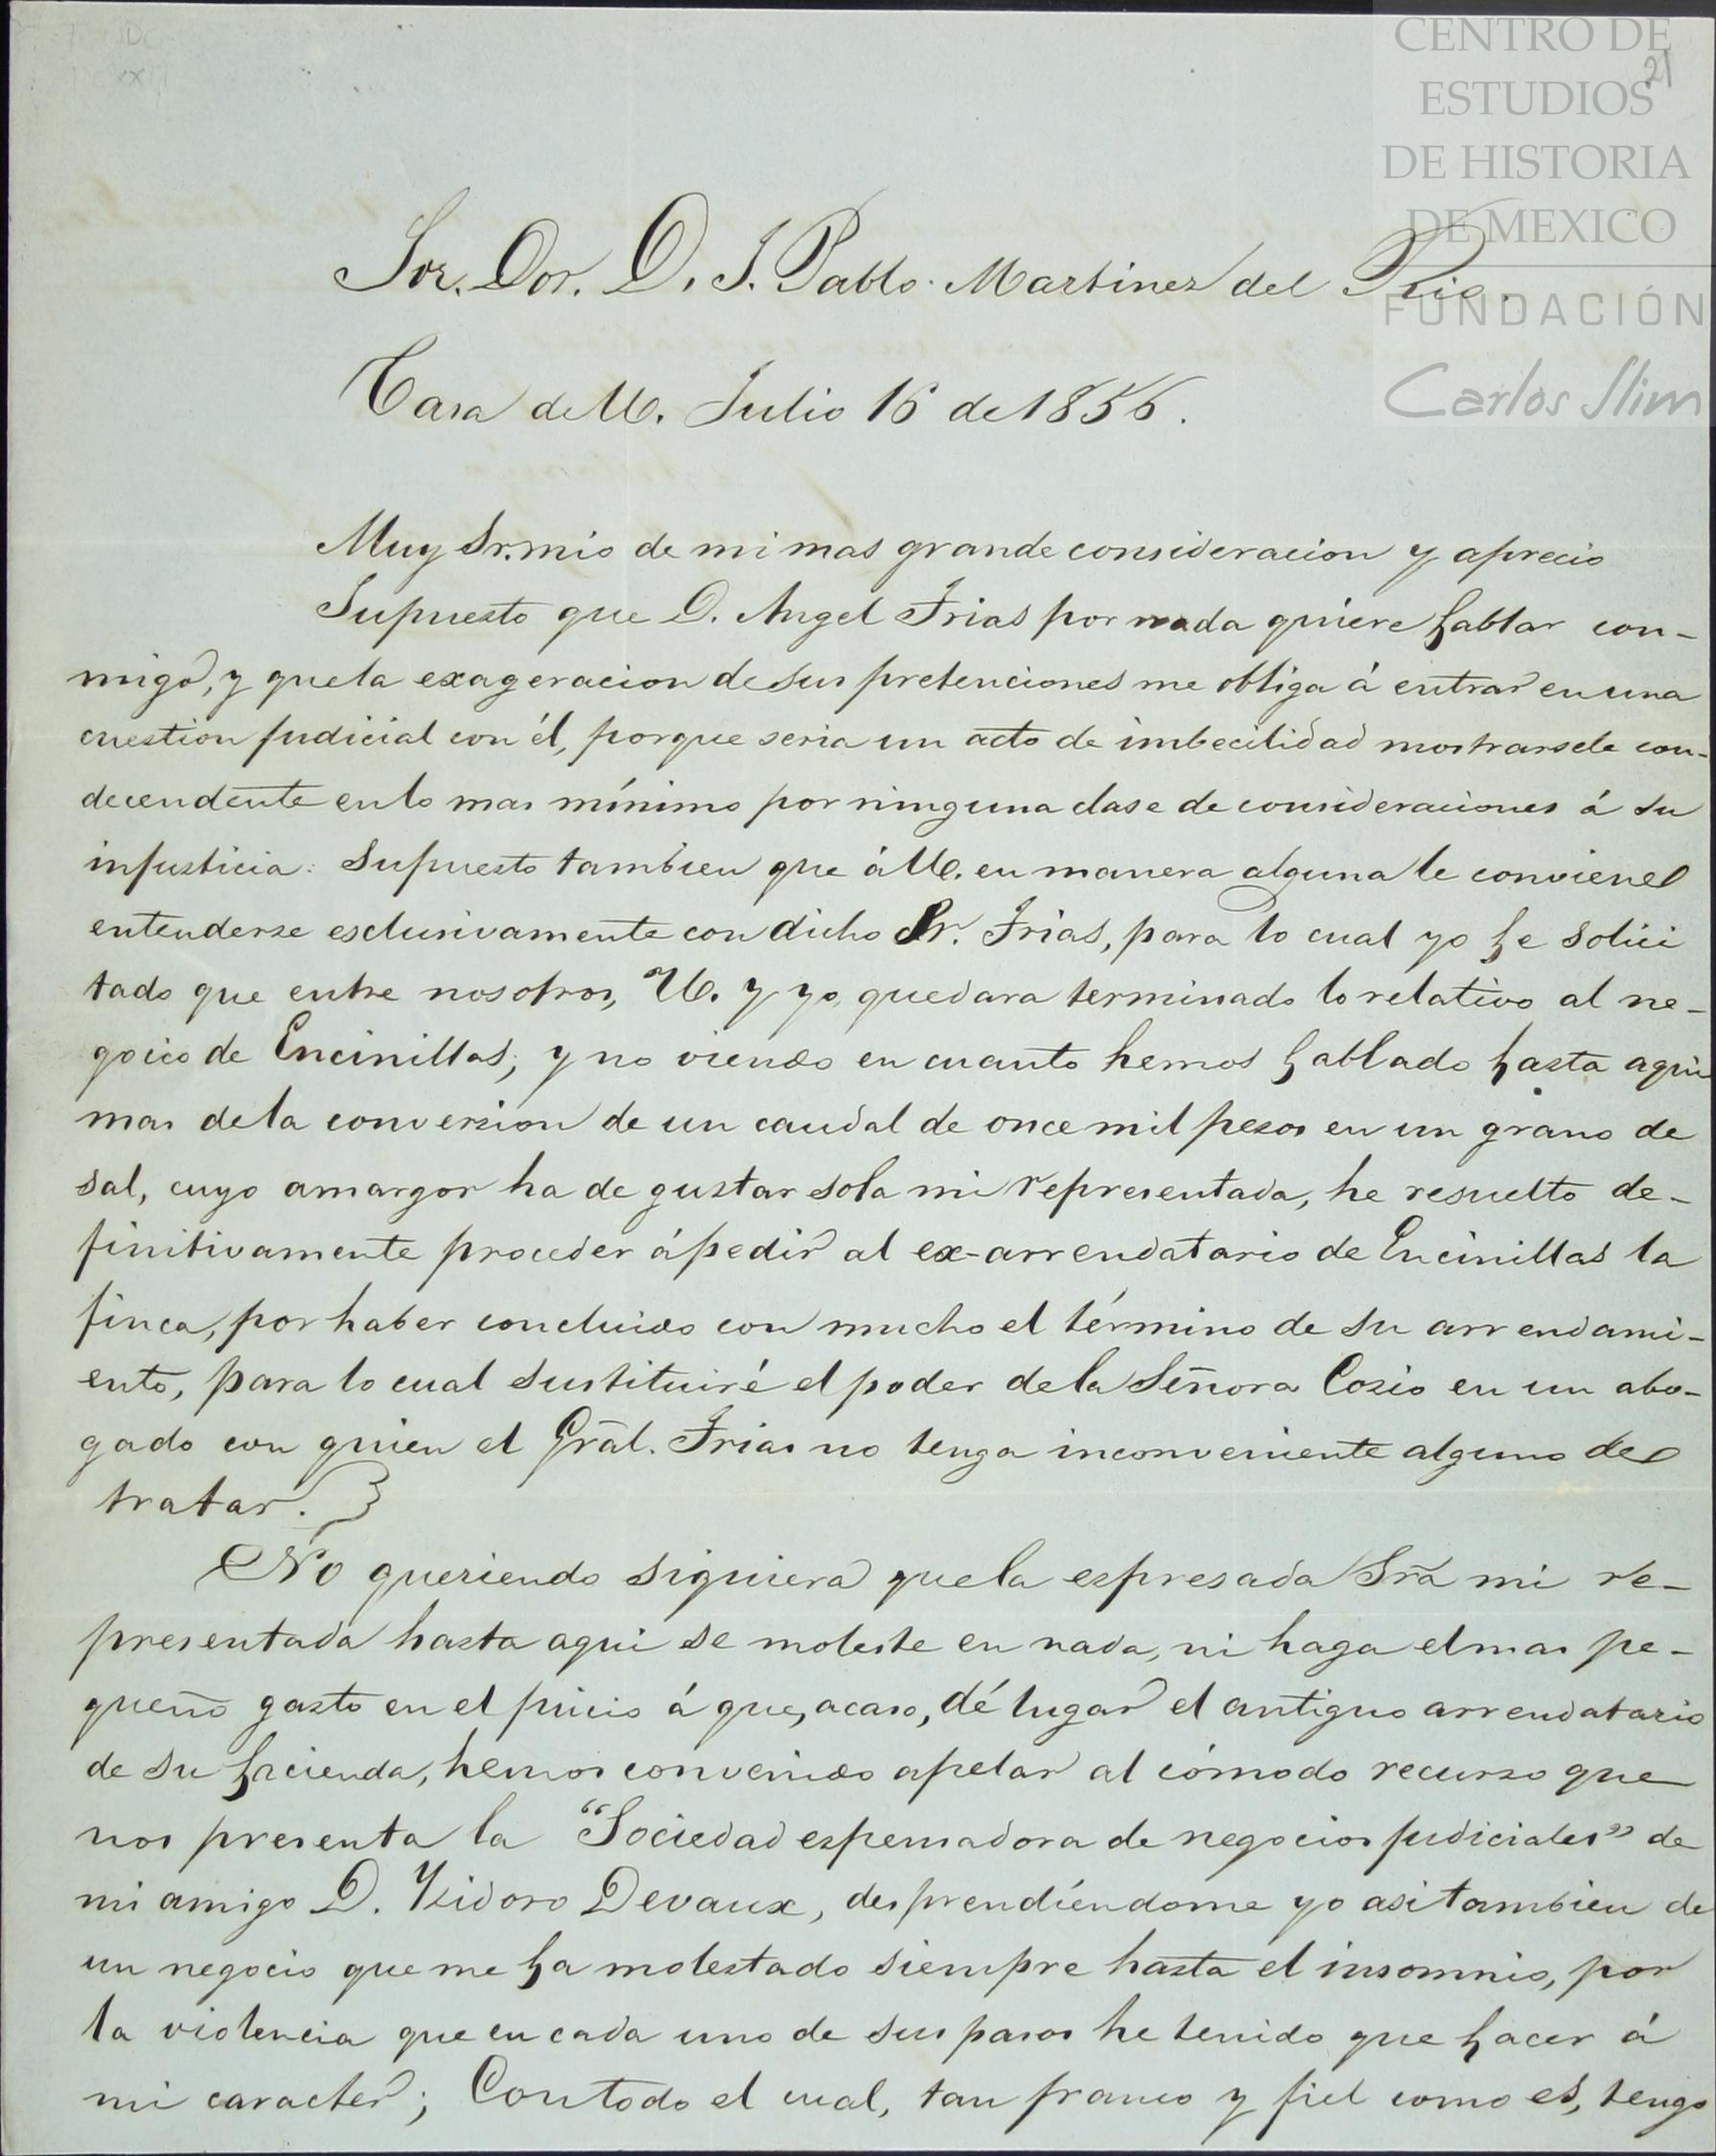 CENTRO DE
ESTUDIOS
21
DE HISTORIA
DE MEXICO
FUNDACIÓN
Carlos Slim
Sor. Dor. D. J. Pablo Martinez del Rio.
Casa de U. Julio 16 de 1856.
Muy Sr. mio de mi mas grande consideracion y aprecio
Supuesto que D. Angel Frias por nada quiere hablar con-
migo, y que la exageracion de sus pretenciones me obliga á entrar en una
cuestion judicial con él, porque seria un acto de imbecilidad mostrarsele con-
decendente en lo mas mínimo por ninguna clase de consideraciones á su
injusticia: Supuesto tambien que á U. en manera alguna le conviene
entenderse esclusivamente con dicho Sr. Frias, para lo cual yo he solici
tado que entre nosotros, U. y yo, quedara terminado lo relativo al ne-
gocio de Encinillas; y no viendo en cuanto hemos hablado hasta aqui
mas de la conversion de un caudal de once mil pesos en un grano de
sal, cuyo amargor ha de gustar sola mi representada, he resuelto de-
finitivamente proceder á pedir al ex-arrendatario de Encinillas la
finca, por haber concluido con mucho el término de su arrendami-
ento, para lo cual sustituiré el poder de la Señora Cosio en un abo-
gado con quien el Gral. Frias no tenga inconveniente alguno de
tratar.
No queriendo siquiera que la espresada Sra mi re-
presentada hasta aqui se moleste en nada, ni haga el mas pe-
queño gasto en el juicio á que, acaso, dé lugar el antiguo arrendatario
de su hacienda, hemos convenido apelar al cómodo recurso que
nos presenta la "Sociedad espensadora de negocios judiciales" de
mi amigo D. Ysidoro Devaux, desprendiéndome yo asi tambien de
un negocio que me ha molestado siempre hasta el insomnio, por
la violencia que en cada uno de sus pasos he tenido que hacer á
mi caracter; Con todo el cual, tan franco y fiel como es, tengo